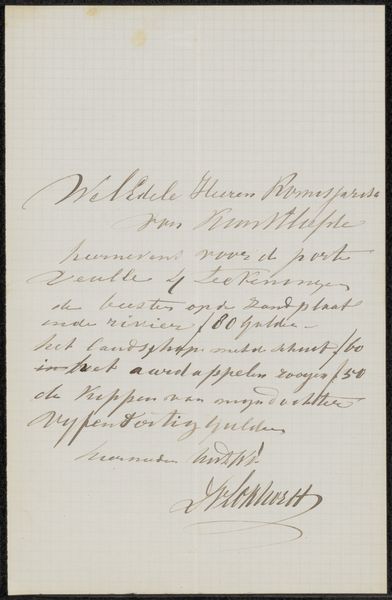 Wel Edele Heeren Komisjarisse
van Kunstliefde
hiernevens voor de porte
veulle 4 teekeningen
de beesten op de zandplaat
inde rivier f 80 Gulden
het landschap met de schuit f 60
het aardappelen rooyen f 50
de kippen van mijn dochter
vyfenfortig Gulden
hiermeden